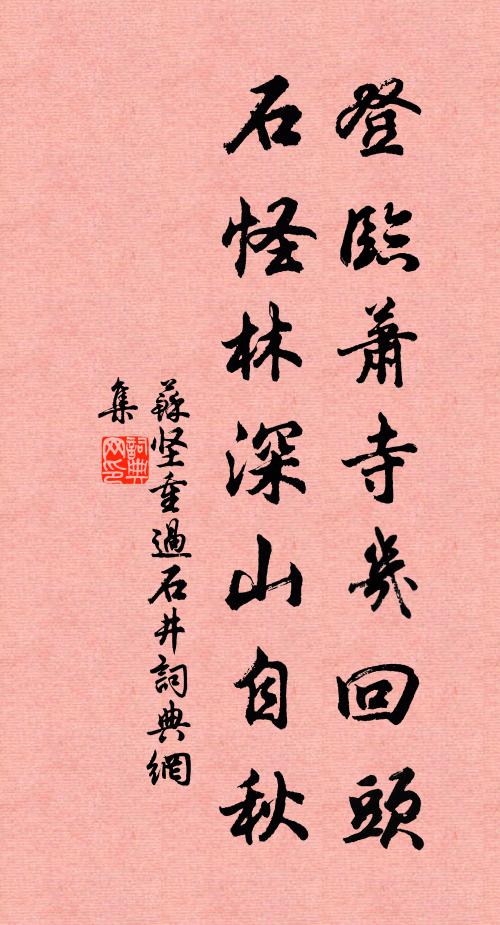 登臨蕭寺幾回頭
石怪林深山自秋
蘇堅重過石井詞典網
集
詞典網印